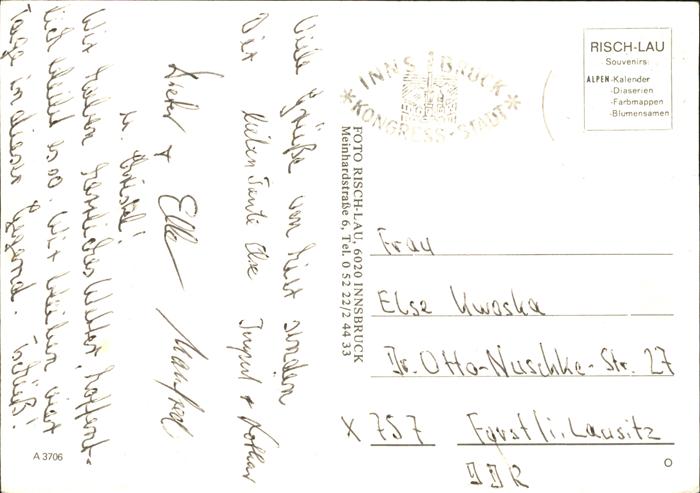 Viele Grüße von hier senden
Dir lieben Tante Else Ingrid + Lothar
Dieter + Elke Manfred
u. Christel!
Wir haben herrliches Wetter, hoffent-
lich bleibt es so. Wir bleiben vier
Tage in dieser Gegend. Tschüß!
A 3706
INNSBRUCK
*KONGRESS-STADT*
FOTO RISCH-LAU, 6020 INNSBRUCK
Meinhardstraße 6, Tel. 0 52 22/2 44 33
RISCH-LAU
Souvenirs:
ALPEN-Kalender
-Diaserien
-Farbmappen
-Blumensamen
Frau
Else Kwaska
Dr. Otto-Nuschke-Str. 27
X 757 Forst i. Lausitz
DDR